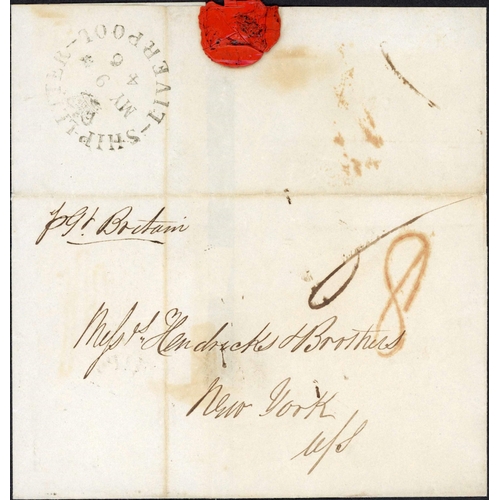 LIVERPOOL
SHIP LETTER
MY 9
46
p Gt Britain
8
Messrs Hendricks & Brothers
New York
U/S